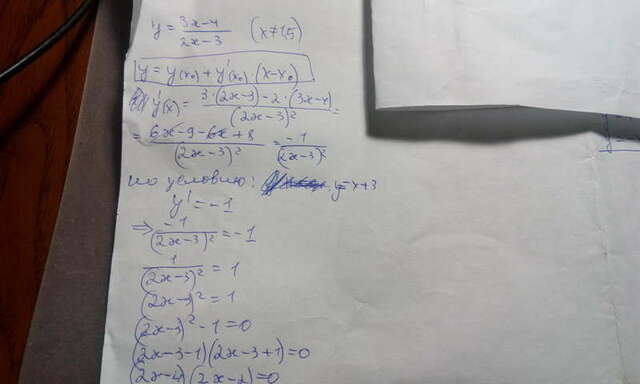 y = (3x-4)/(2x-3) (x≠1,5)
y = y(x₀) + y'(x₀)·(x-x₀)
y'(x) = (3·(2x-3)-2·(3x-4))/(2x-3)² =
= (6x-9-6x+8)/(2x-3)² = -1/(2x-3)²
по условию: y=x+3
y' = -1
⇒ -1/(2x-3)² = -1
1/(2x-3)² = 1
(2x-3)² = 1
(2x-3)² - 1 = 0
(2x-3-1)(2x-3+1)=0
(2x-4)(2x-2)=0